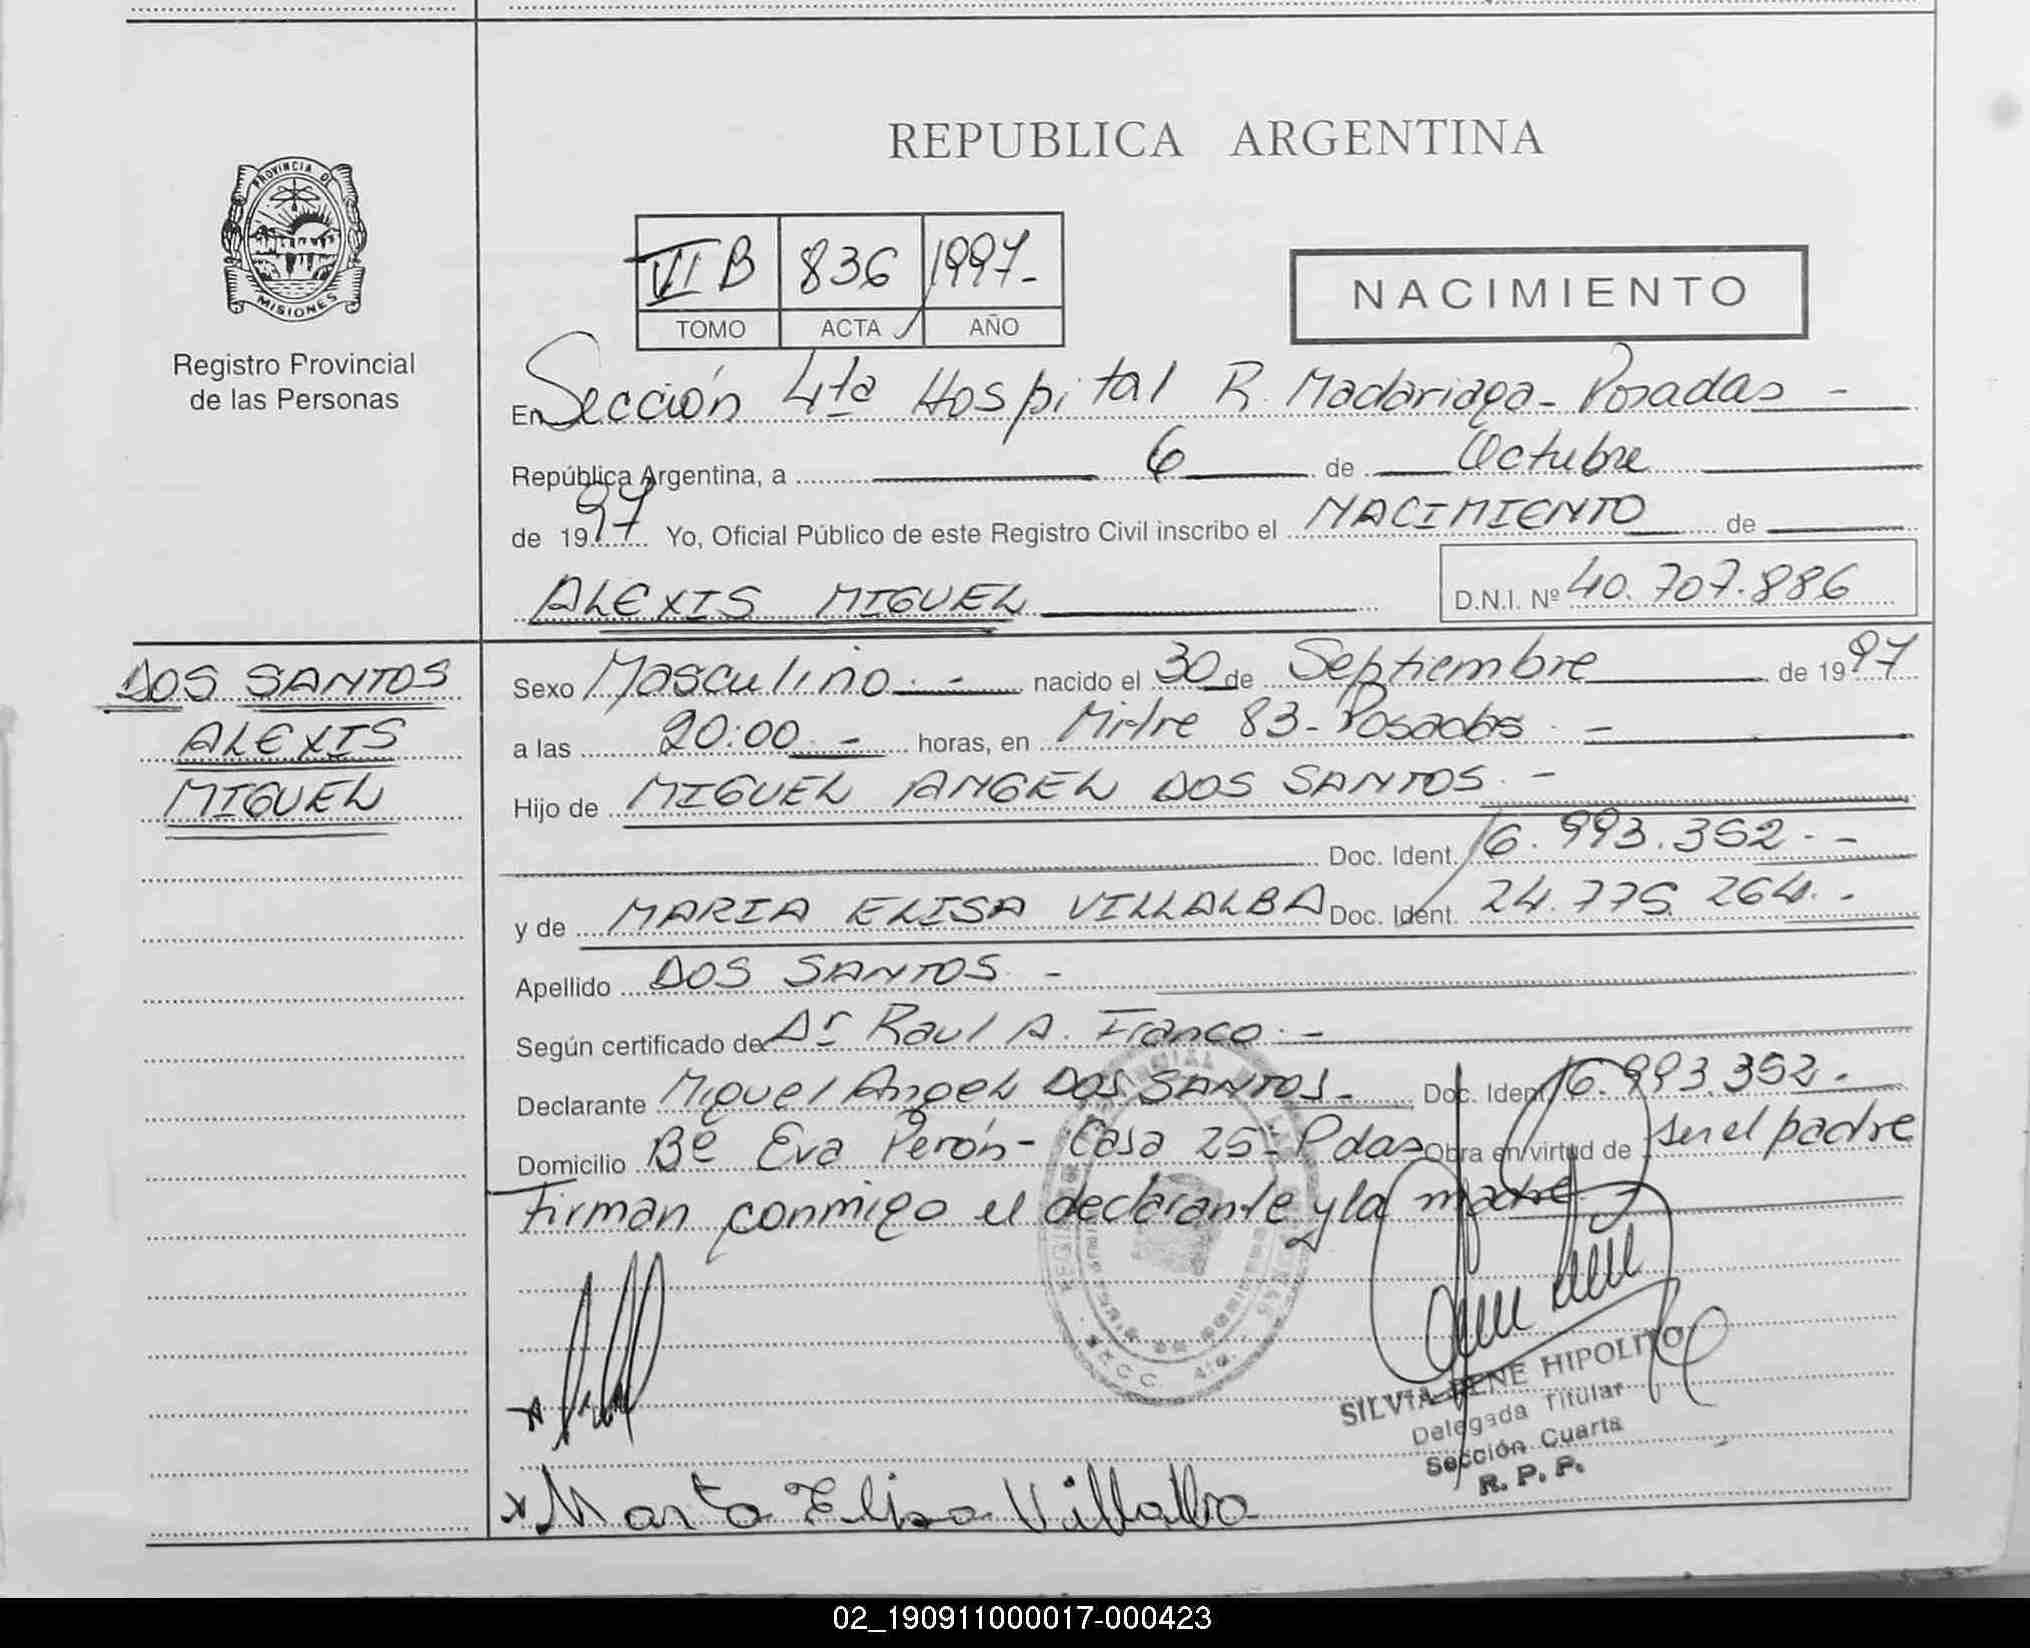 REPUBLICA ARGENTINA
PROVINCIA DE
MISIONES
Registro Provincial
de las Personas
VI B 836 1997-
TOMO ACTA AÑO
NACIMIENTO
En Sección 4ta Hospital R. Madariaga - Posadas -
República Argentina, a 6 de Octubre
de 1997 Yo, Oficial Público de este Registro Civil inscribo el NACIMIENTO de
ALEXIS MIGUEL D.N.I. Nº 40.707.886
DOS SANTOS
ALEXIS
MIGUEL
Sexo Masculino.- nacido el 30 de Septiembre de 1997
a las 20:00.- horas, en Mitre 83 - Posadas.-
Hijo de MIGUEL ANGEL DOS SANTOS.-
Doc. Ident. 16.993.352.-
y de MARIA ELISA VILLALBA Doc. Ident. 24.775.264.-
Apellido DOS SANTOS.-
Según certificado de Dr Raul A. Franco.-
Declarante Miguel Angel DOS SANTOS.- Doc. Ident 16.993.352.-
Domicilio Bº Eva Perón - Casa 25 - Pdas Obra en virtud de ser el padre
Firman conmigo el declarante y la madre.-
SILVIA RENE HIPOLITO
Delegada Titular
Sección Cuarta
R. P. P.
x Marta Elisa Villalba
02_190911000017-000423